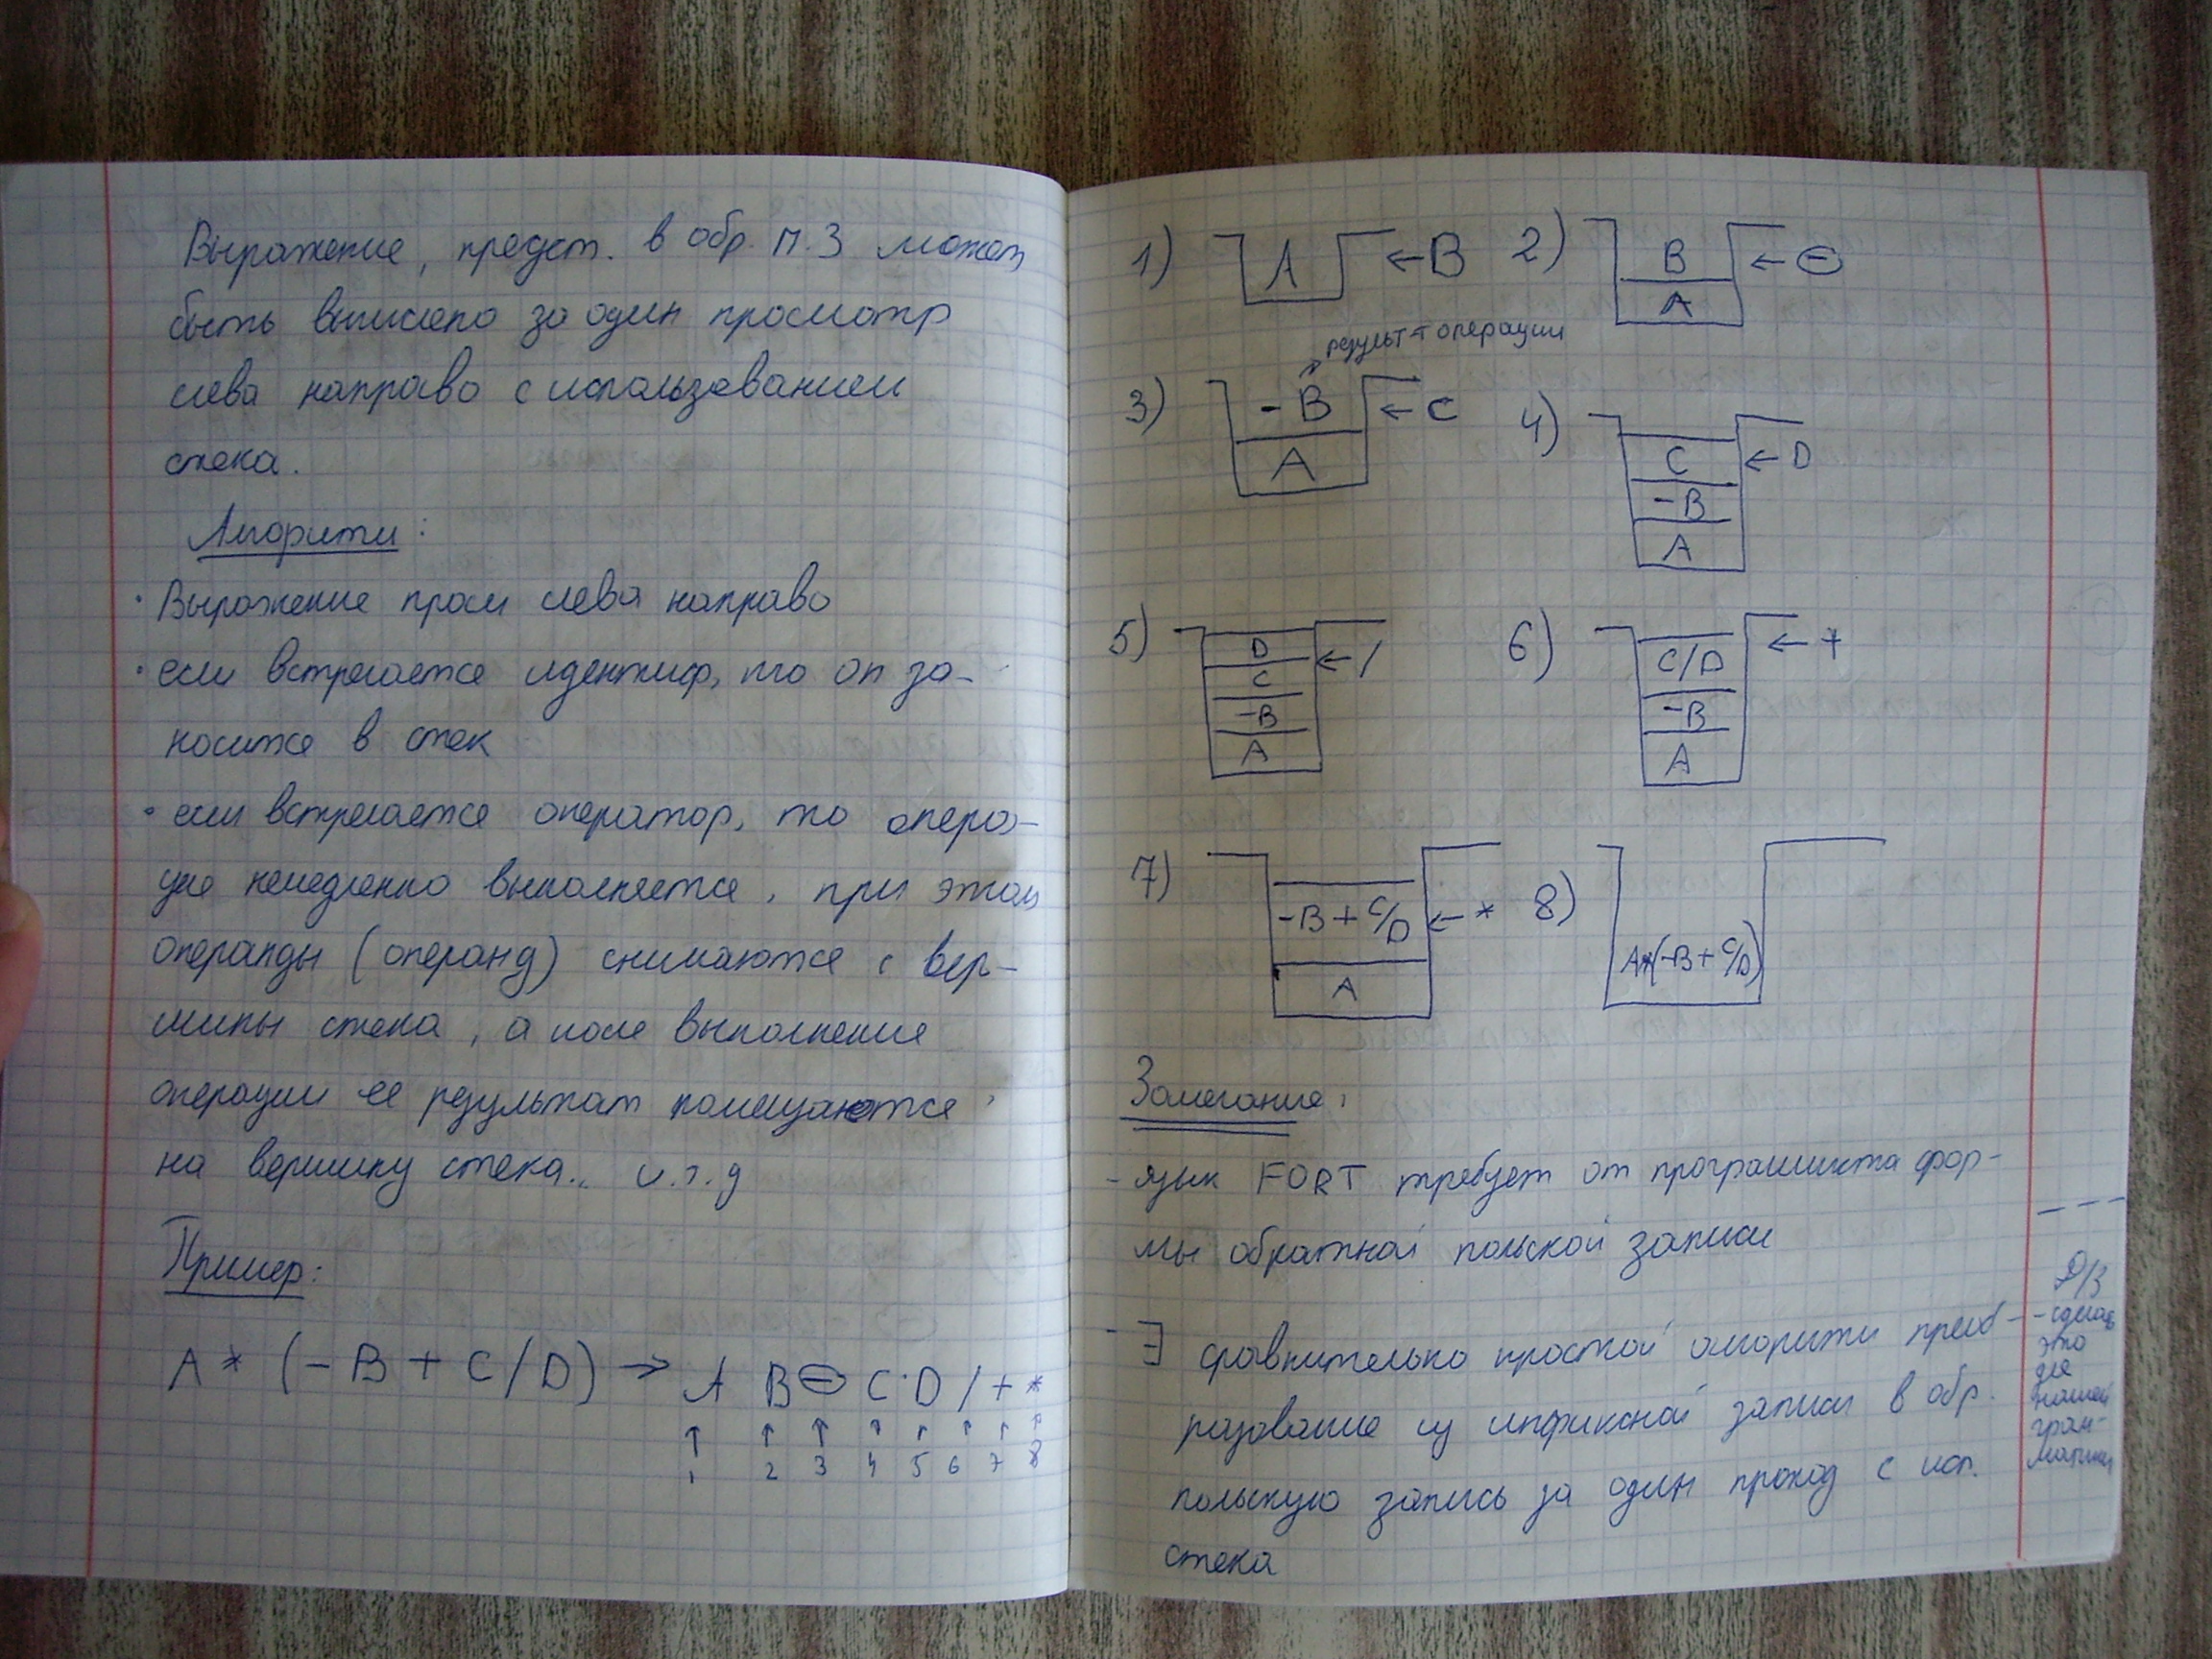 Выражение, предст. в обр. П.З может
быть вычислено за один просмотр
слева направо с использованием
стека.
Алгоритм:
· Выражение просм слева направо
· если встречается идентиф, то он за-
носится в стек
· если встречается оператор, то опера-
ция немедленно выполняется, при этом
операнды (операнд) снимаются с вер-
шины стека, а после выполнения
операции ее результат помещаются
на вершину стека.. и.т.д
Пример:
A * (-B + C/D) → A B ⊖ C · D / + *
↑ ↑ ↑ ↑ ↑ ↑ ↑ ↑
1 2 3 4 5 6 7 8
1) A ← B
2) B ← ⊖
A
результ-т операции
3) -B ← C
A
4) C ← D
-B
A
5) D ← /
C
-B
A
6) C/D ← +
-B
A
7) -B + C/D ← *
A
8) A*(-B + C/D)
Замечание:
- язык FORT требует от программиста фор-
мы обратной польской записи
- ∃ сравнительно простой алгоритм преоб-
разование из инфиксной записи в обр.
польскую запись за один проход с исп.
стека
Д/З
- сделать
это
для
нашей
грам-
матики